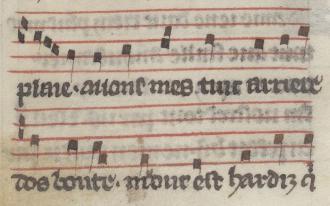 plaie · auons mes tuit arriere
dos boute · mout est hardiz q̃